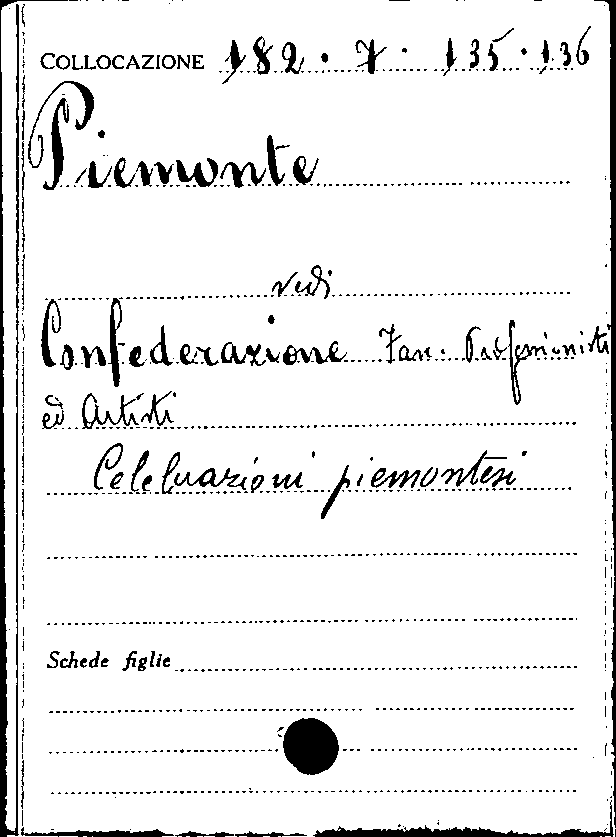 COLLOCAZIONE 182 . 7 . 135 . 136
Piemonte
vedi
Confederazione Fasc. Professionisti
ed Artisti
Celebrazioni piemontesi
Schede figlie